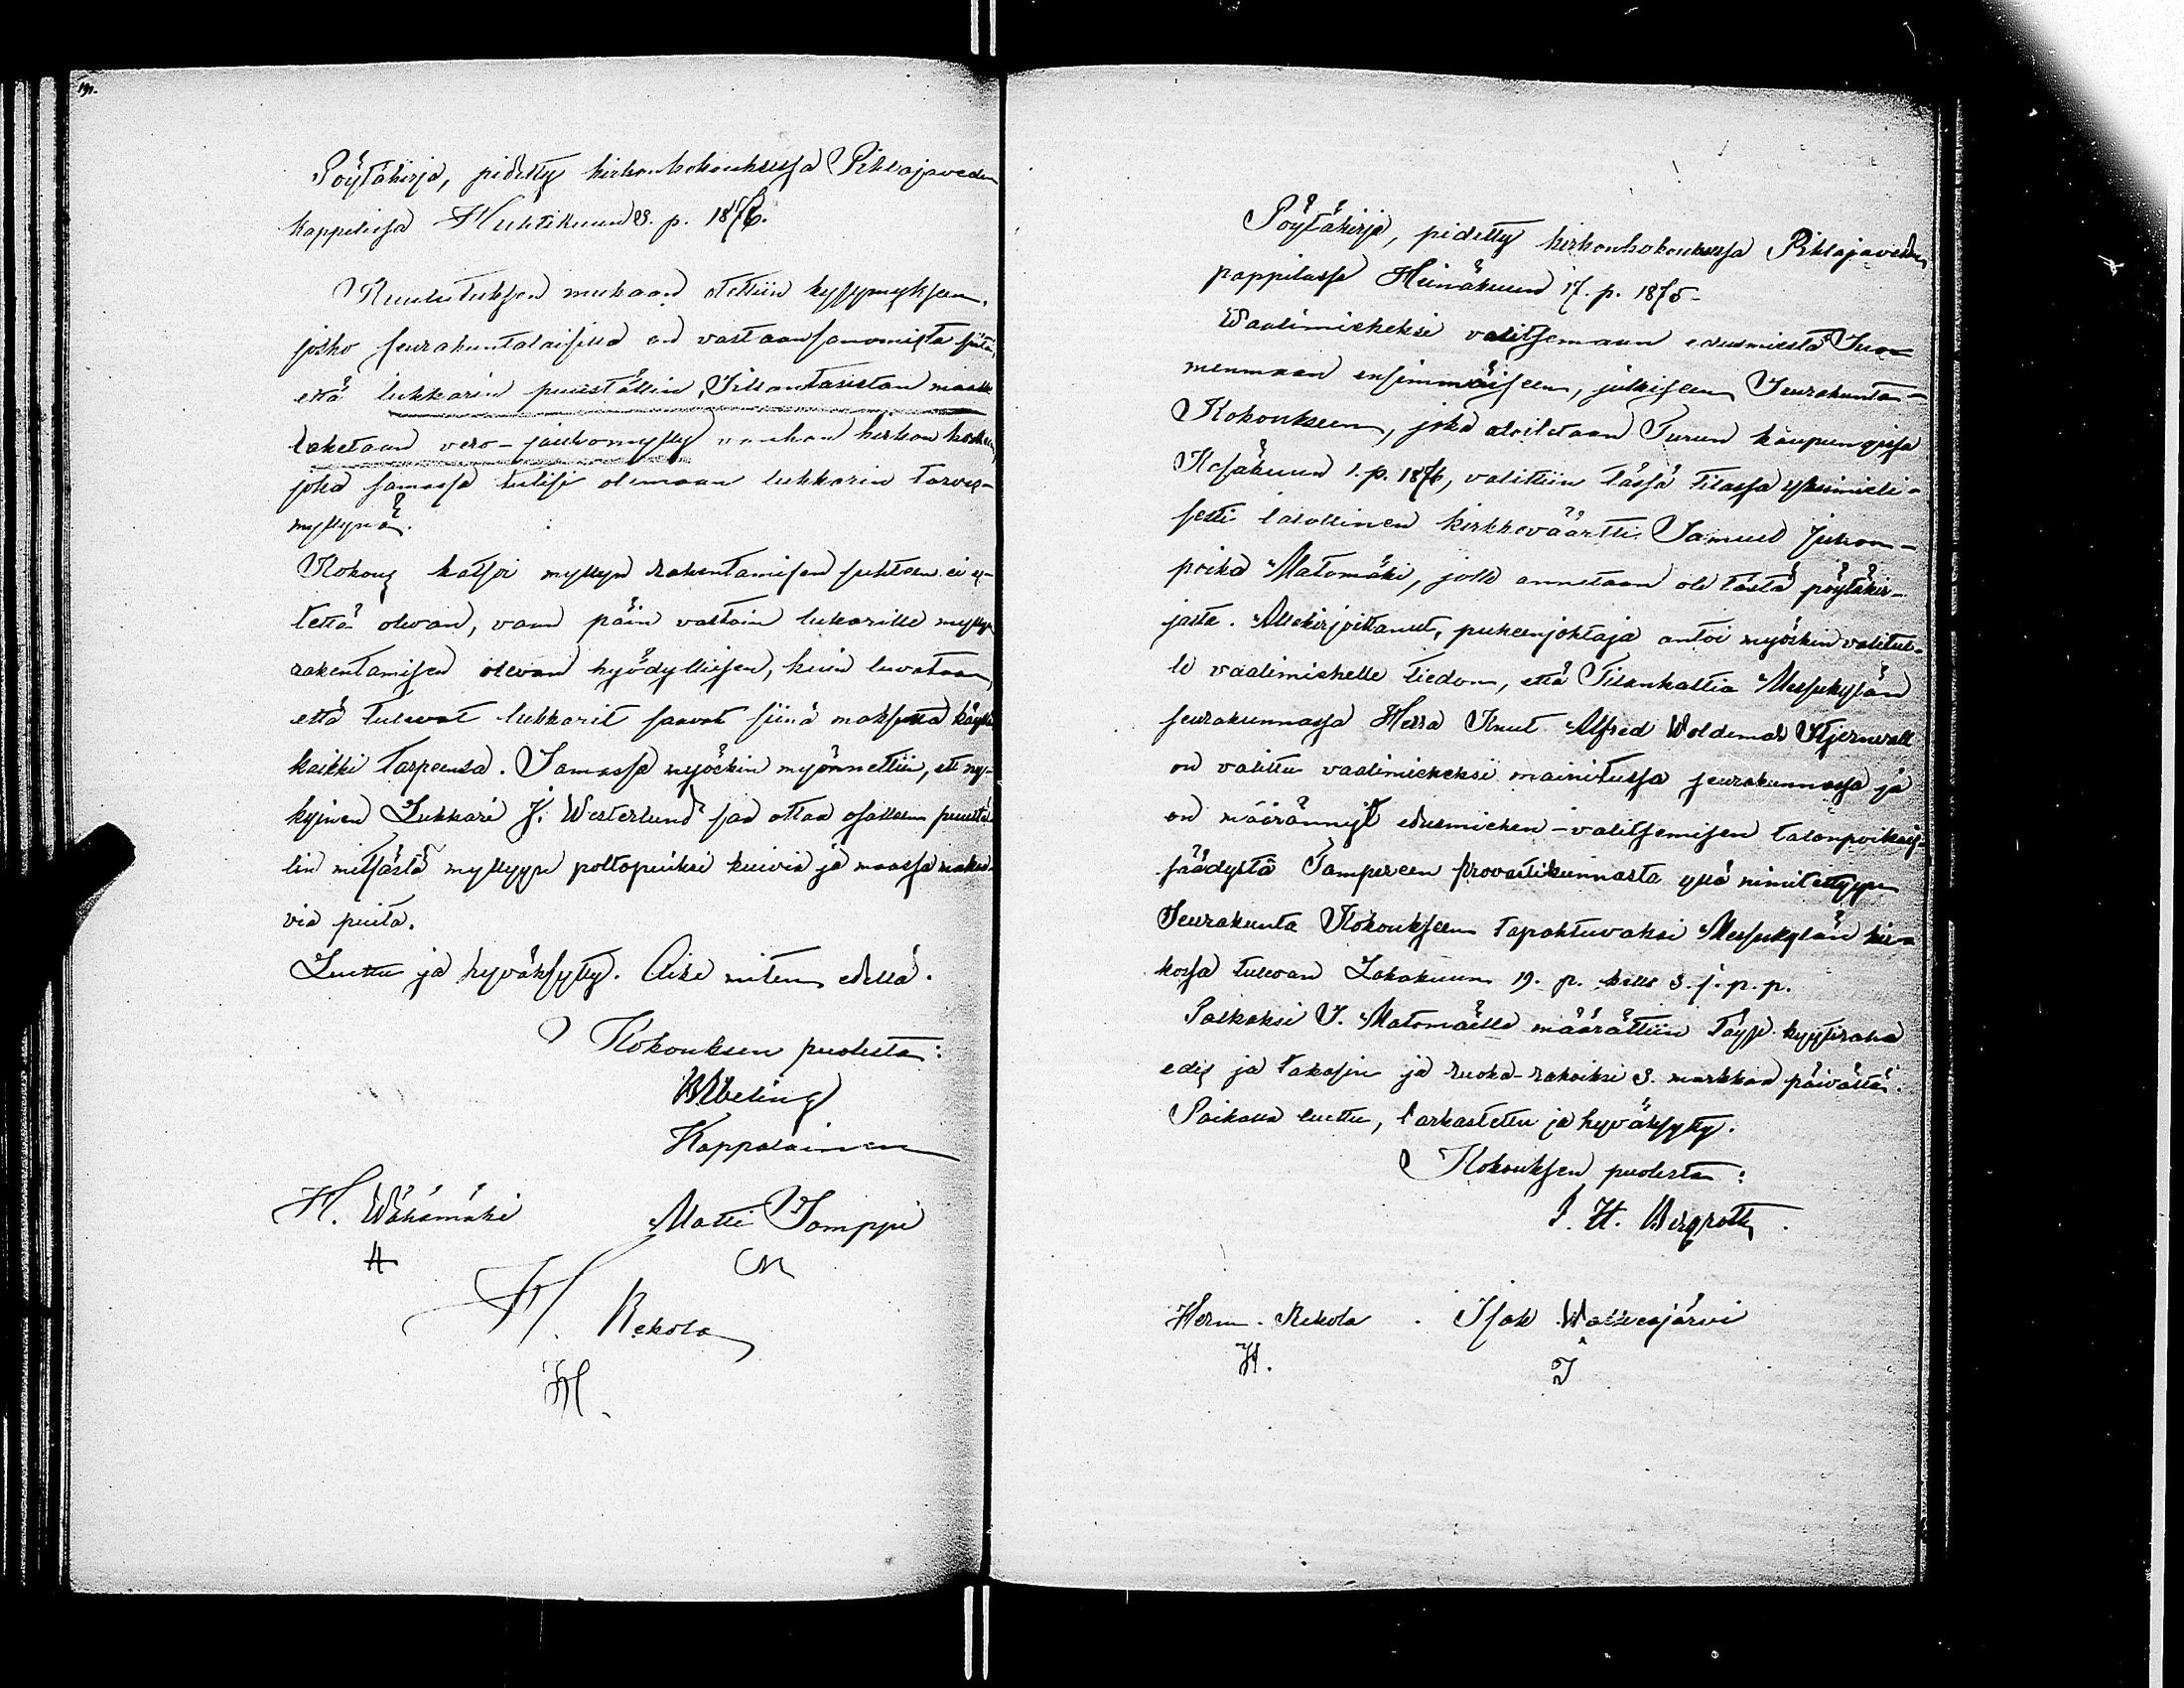 191.
Pöytäkirja, pidetty kirkonkokouksessa Pihlajaveden
kappelissa Huhtikuun 23. p. 1876.
Kuulutuksen mukaan otettiin kysymykseen,
josko seurakuntalaisilla on vastaansanomista siitä,
että lukkarin puuställin, Tillantasistan maalle
laketaan vero-jauhomylly vanhan kirkon koskeen,
joka samassa tulisi olemaan lukkarin tarves-
myllynä.
Kokous katsoi myllyn rakentamisen suhteen ei es-
tettä olevan, vaan päin vastoin lukarille myllyn
rakentamisen olevan hyödyllisen, kuin luvataan,
että tulevat lukkarit saavat siinä maksutta käyttää
kaikki tarpeensa. Samassa myöskin myönnettiin, että ny-
kyinen Lukkari J. Westerlund saa ottaa osallensa puustä-
lin mitsästä myllyyn polttopuiksi kuivia ja maassa makaa-
via puita.
Luettu ja hyväksytty. Aika miten edellä.
Kokouksen puolesta:
Kappalainen
H. Wähämäki Matti Tomppi
H M
H. Rekola
H.
Pöytäkirja, pidetty kirkonkokouksessa Pihlajaveden
pappilassa Heinäkuun 17. p. 1875.
Waalimieheksi valitsemaan edusmiestä Suo-
menmaan ensimmäiseen, julkiseen Seurakunta-
Kokoukseen, joka aloitetaan Turun kaupungissa
Kesäkuun 1. p. 1876, valittiin tässä tilassa yksimieli-
sesti talollinen kirkkoväärtti Samuel Juhon-
poika Matomäki, jolle annetaan ote tästä pöytäkir-
jasta. Allekirjoittanut, puheenjohtaja antoi myöskin valitul-
le vaalimiehelle tiedon, että Tilanhaltia Messukylän
seurakunnassa Herra Knut Alfred Woldemar Stjernvall
on valittu vaalimieheksi mainitussa seurakunnassa ja
on määrännyt edusmiehen-valitsemisen talonpoikais-
säädystä Tampereen provastikunnasta yllä nimitettyyn
Seurakunta Kokoukseen tapahtuvaksi Messukylän kir-
kossa tulevan Lokakuun 19. p. kello 3. j. p. p.
Palkaksi S. Matomäelle määrättiin täysi kyytiraha
edes ja takasin ja ruoka-rahoiksi 3. markkaa päivältä.
Paikalla luettu, tarkastettu ja hyväksytty.
Kokouksen puolesta:
J. H. Bergroth.
Herm. Rekola. Isak Walkeajärvi
H. I